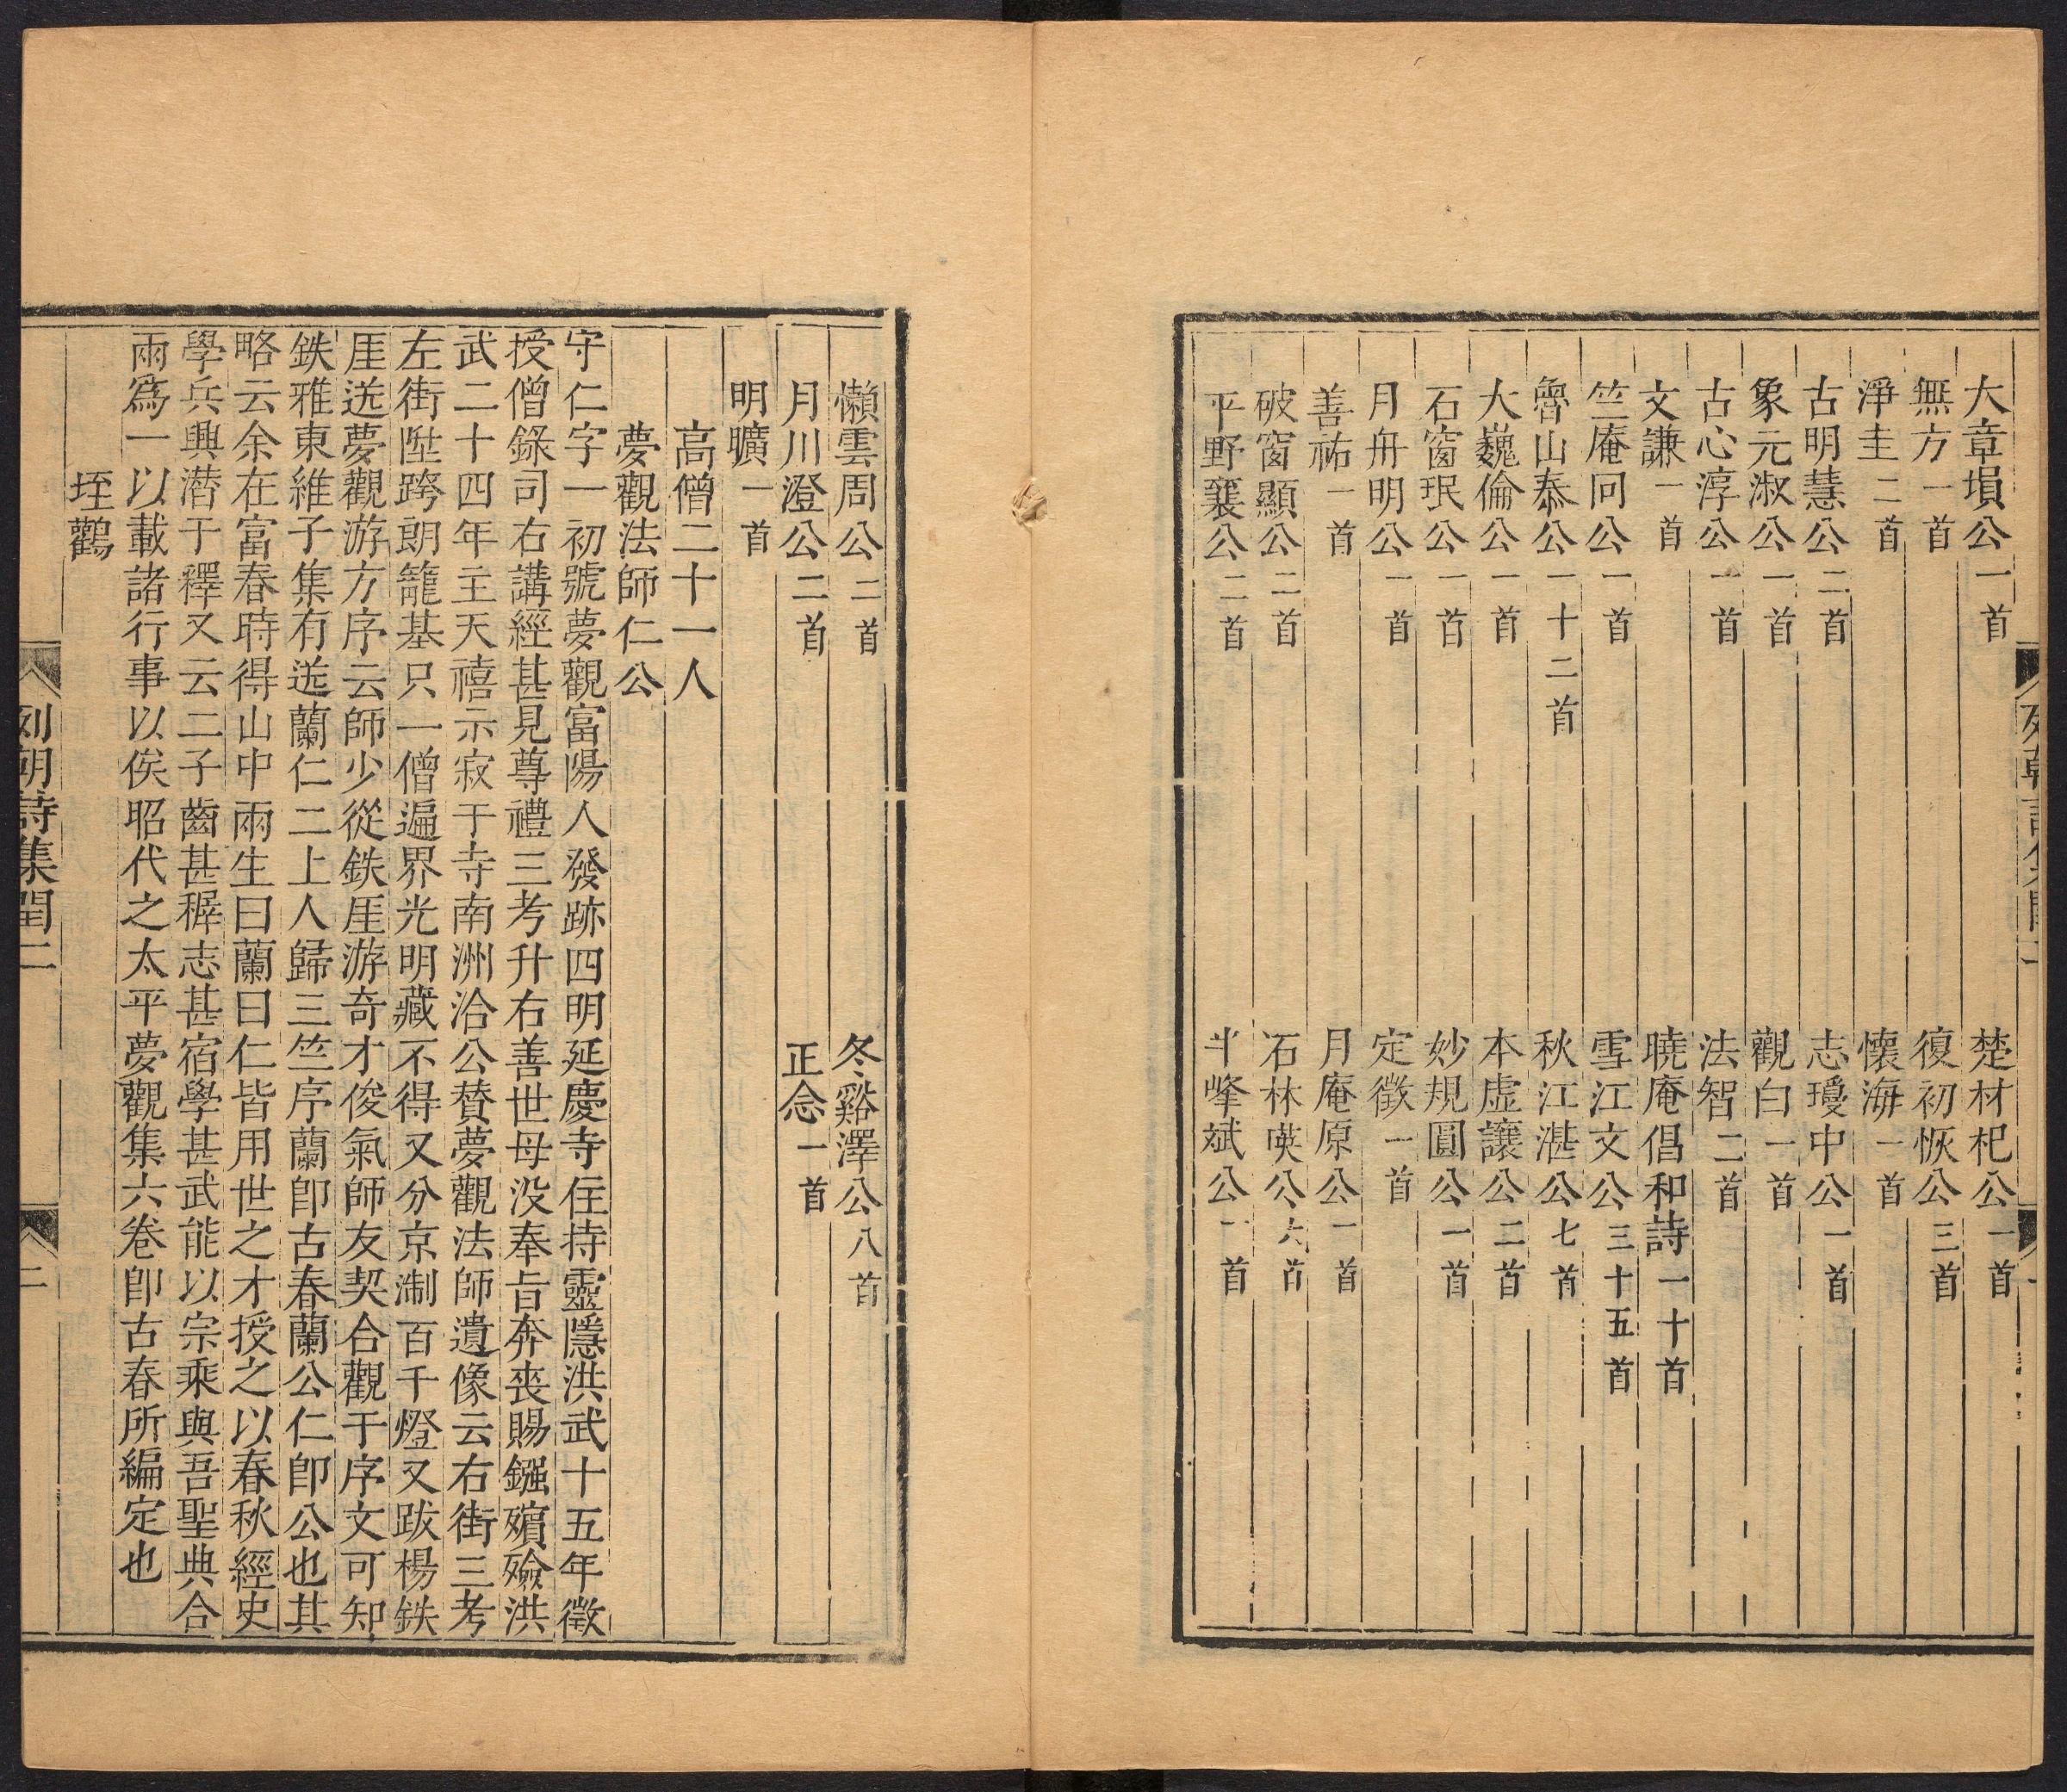 大章塤公一首　楚材杞公一首
無方一首　復初恢公三首
淨圭二首　懷海一首
古明慧公二首　志瓊中公一首
象元淑公一首　觀白一首
古心淳公一首　法智二首
文謙一首　曉庵倡和詩一十首
竺庵同公一首　雪江文公三十五首
魯山泰公一十二首　秋江湛公七首
大巍倫公一首　本虛讓公二首
石窗珉公一首　妙規圓公一首
月舟明公一首　定徵一首
善祐一首　月庵原公一首
破窗顯公二首　石林瑛公六首
平野襄公二首　半峰斌公一首
懶雲周公二首　冬谿澤公八首
月川澄公二首　正念一首
明曠一首
高僧二十一人
夢觀法師仁公
守仁字一初號夢觀富陽人發跡四明延慶寺住持靈隱洪武十五年徵
授僧錄司右講經甚見尊禮三考升右善世母没奉旨奔喪賜鏹殯殮洪
武二十四年主天禧示寂于寺南洲洽公贊夢觀法師遺像云右街三考
左街陞跨朗籠基只一僧遍界光明藏不得又分京制百千燈又跋楊鉄
厓送夢觀游方序云師少從鉄厓游奇才俊氣師友契合觀于序文可知
鉄雅東維子集有送蘭仁二上人歸三竺序蘭卽古春蘭公仁卽公也其
略云余在富春時得山中兩生曰蘭曰仁皆用世之才授之以春秋經史
學兵興潜于釋又云二子齒甚穉志甚宿學甚武能以宗乘與吾聖典合
兩爲一以載諸行事以俟昭代之太平夢觀集六卷卽古春所編定也
垤鸛
列朝詩集閏二
二